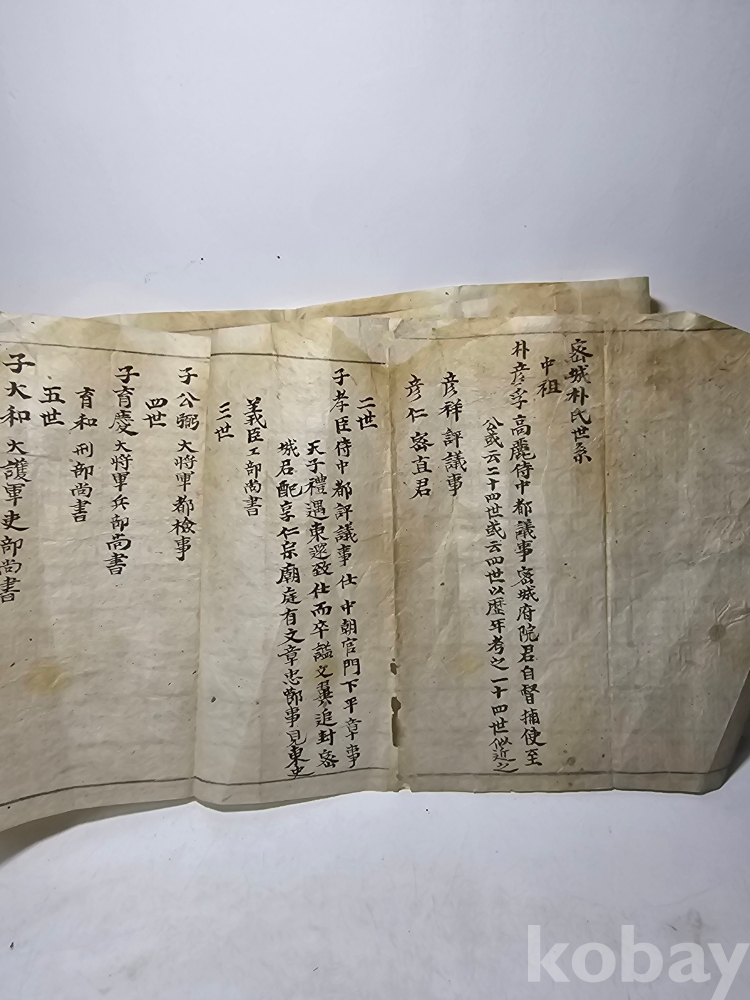 密城朴氏世系
中祖
朴彦孚高麗侍中都議事密城府院君自督捕使至
公或云二十四世或云四世以歷年考之一十四世似近之
彦祥評議事
彦仁密直君
二世
子孝臣侍中都評議事仕中朝官門下平章事
天子禮遇東還致仕而卒謚文翼追封密
城君配享仁宗廟庭有文章忠節事見東史
義臣工部尚書
三世
子公弼大將軍都檢事
四世
子育慶大將軍兵部尚書
育和刑部尚書
五世
子大和大護軍吏部尚書
kobay